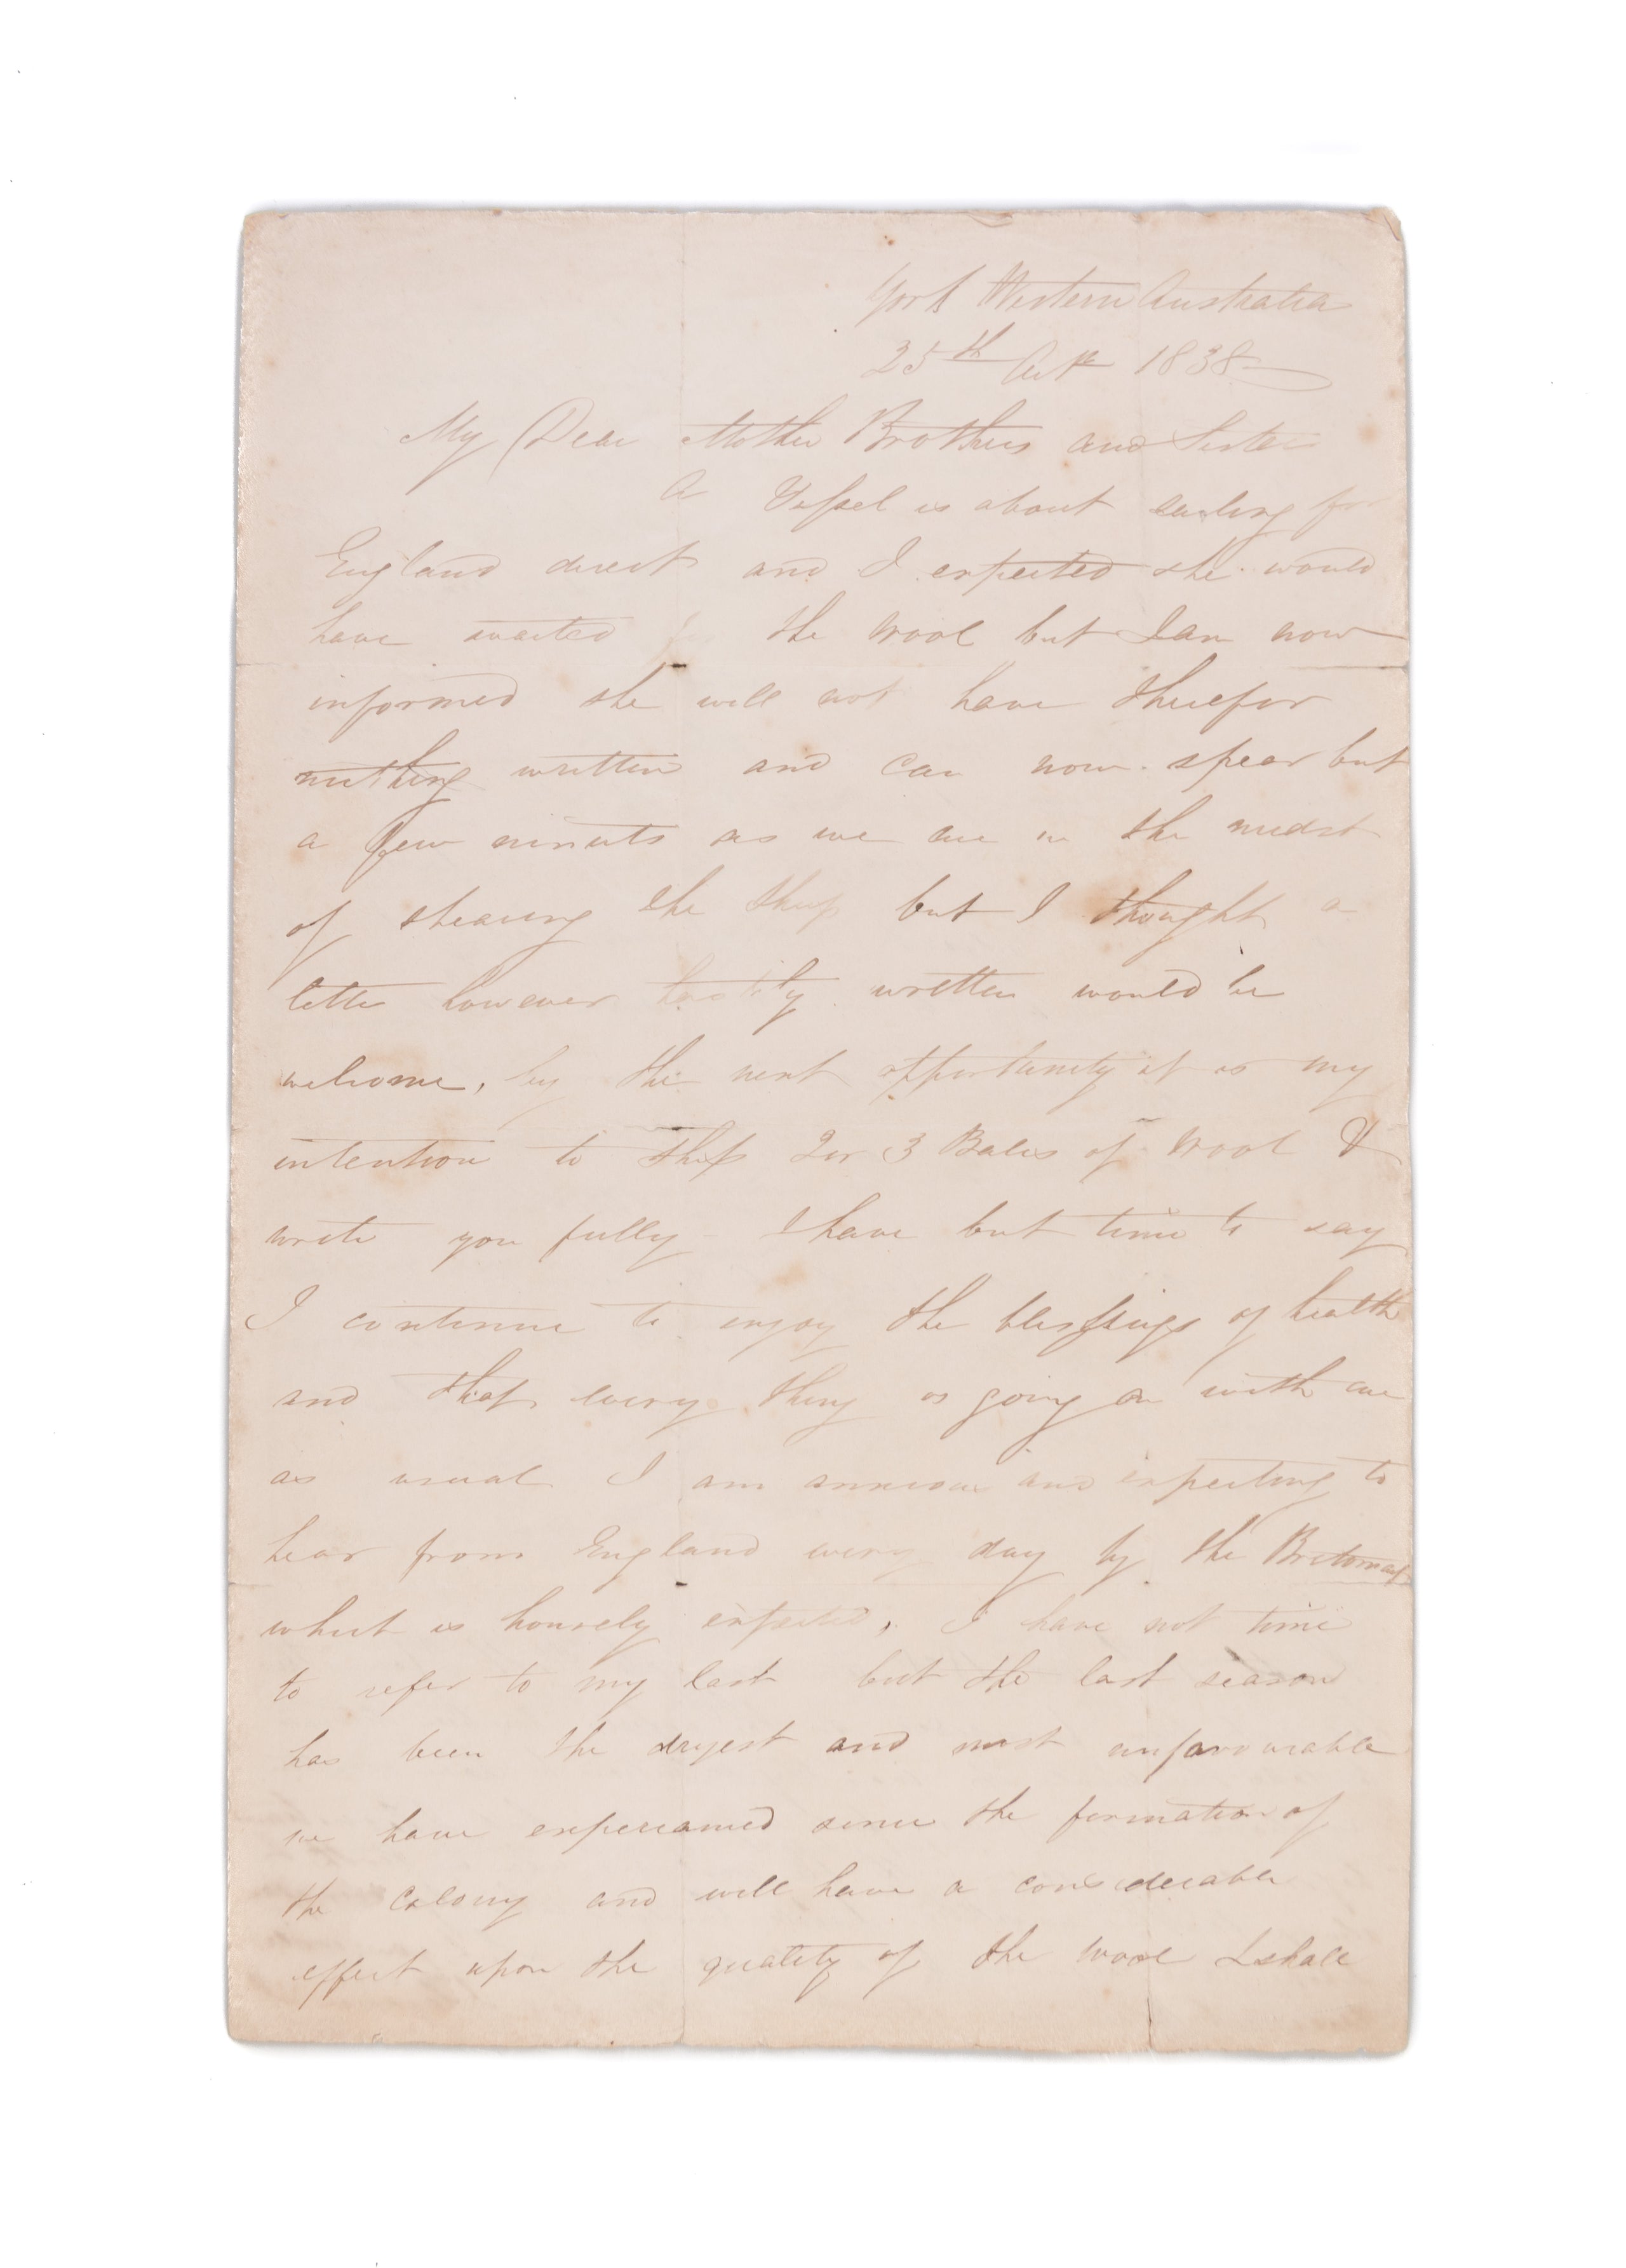 York Western Australia
25th Octr 1838
My Dear Mother Brothers and Sister
A Vessel is about sailing for
England direct and I expected she would
have waited for the wool but I am now
informed she will not have therefor
nothing written and can now spear but
a few minuts as we are in the midst
of shearing the sheep but I thought a
letter however hastily written would be
welcome, by the next opportunity it is my
intention to ship 2 or 3 Bales of Wool &
write you fully I have but time to say
I continue to enjoy the blessings of health
and that every thing is going on with me
as usual I am anxious and expecting to
hear from England every day by the Britomart
which is hourely expected, I have not time
to refer to my last but the last season
has been the dryest and most unfavourable
we have experianced since the formation of
the Colony and will have a considerable
effect upon the quality of the wool I shall